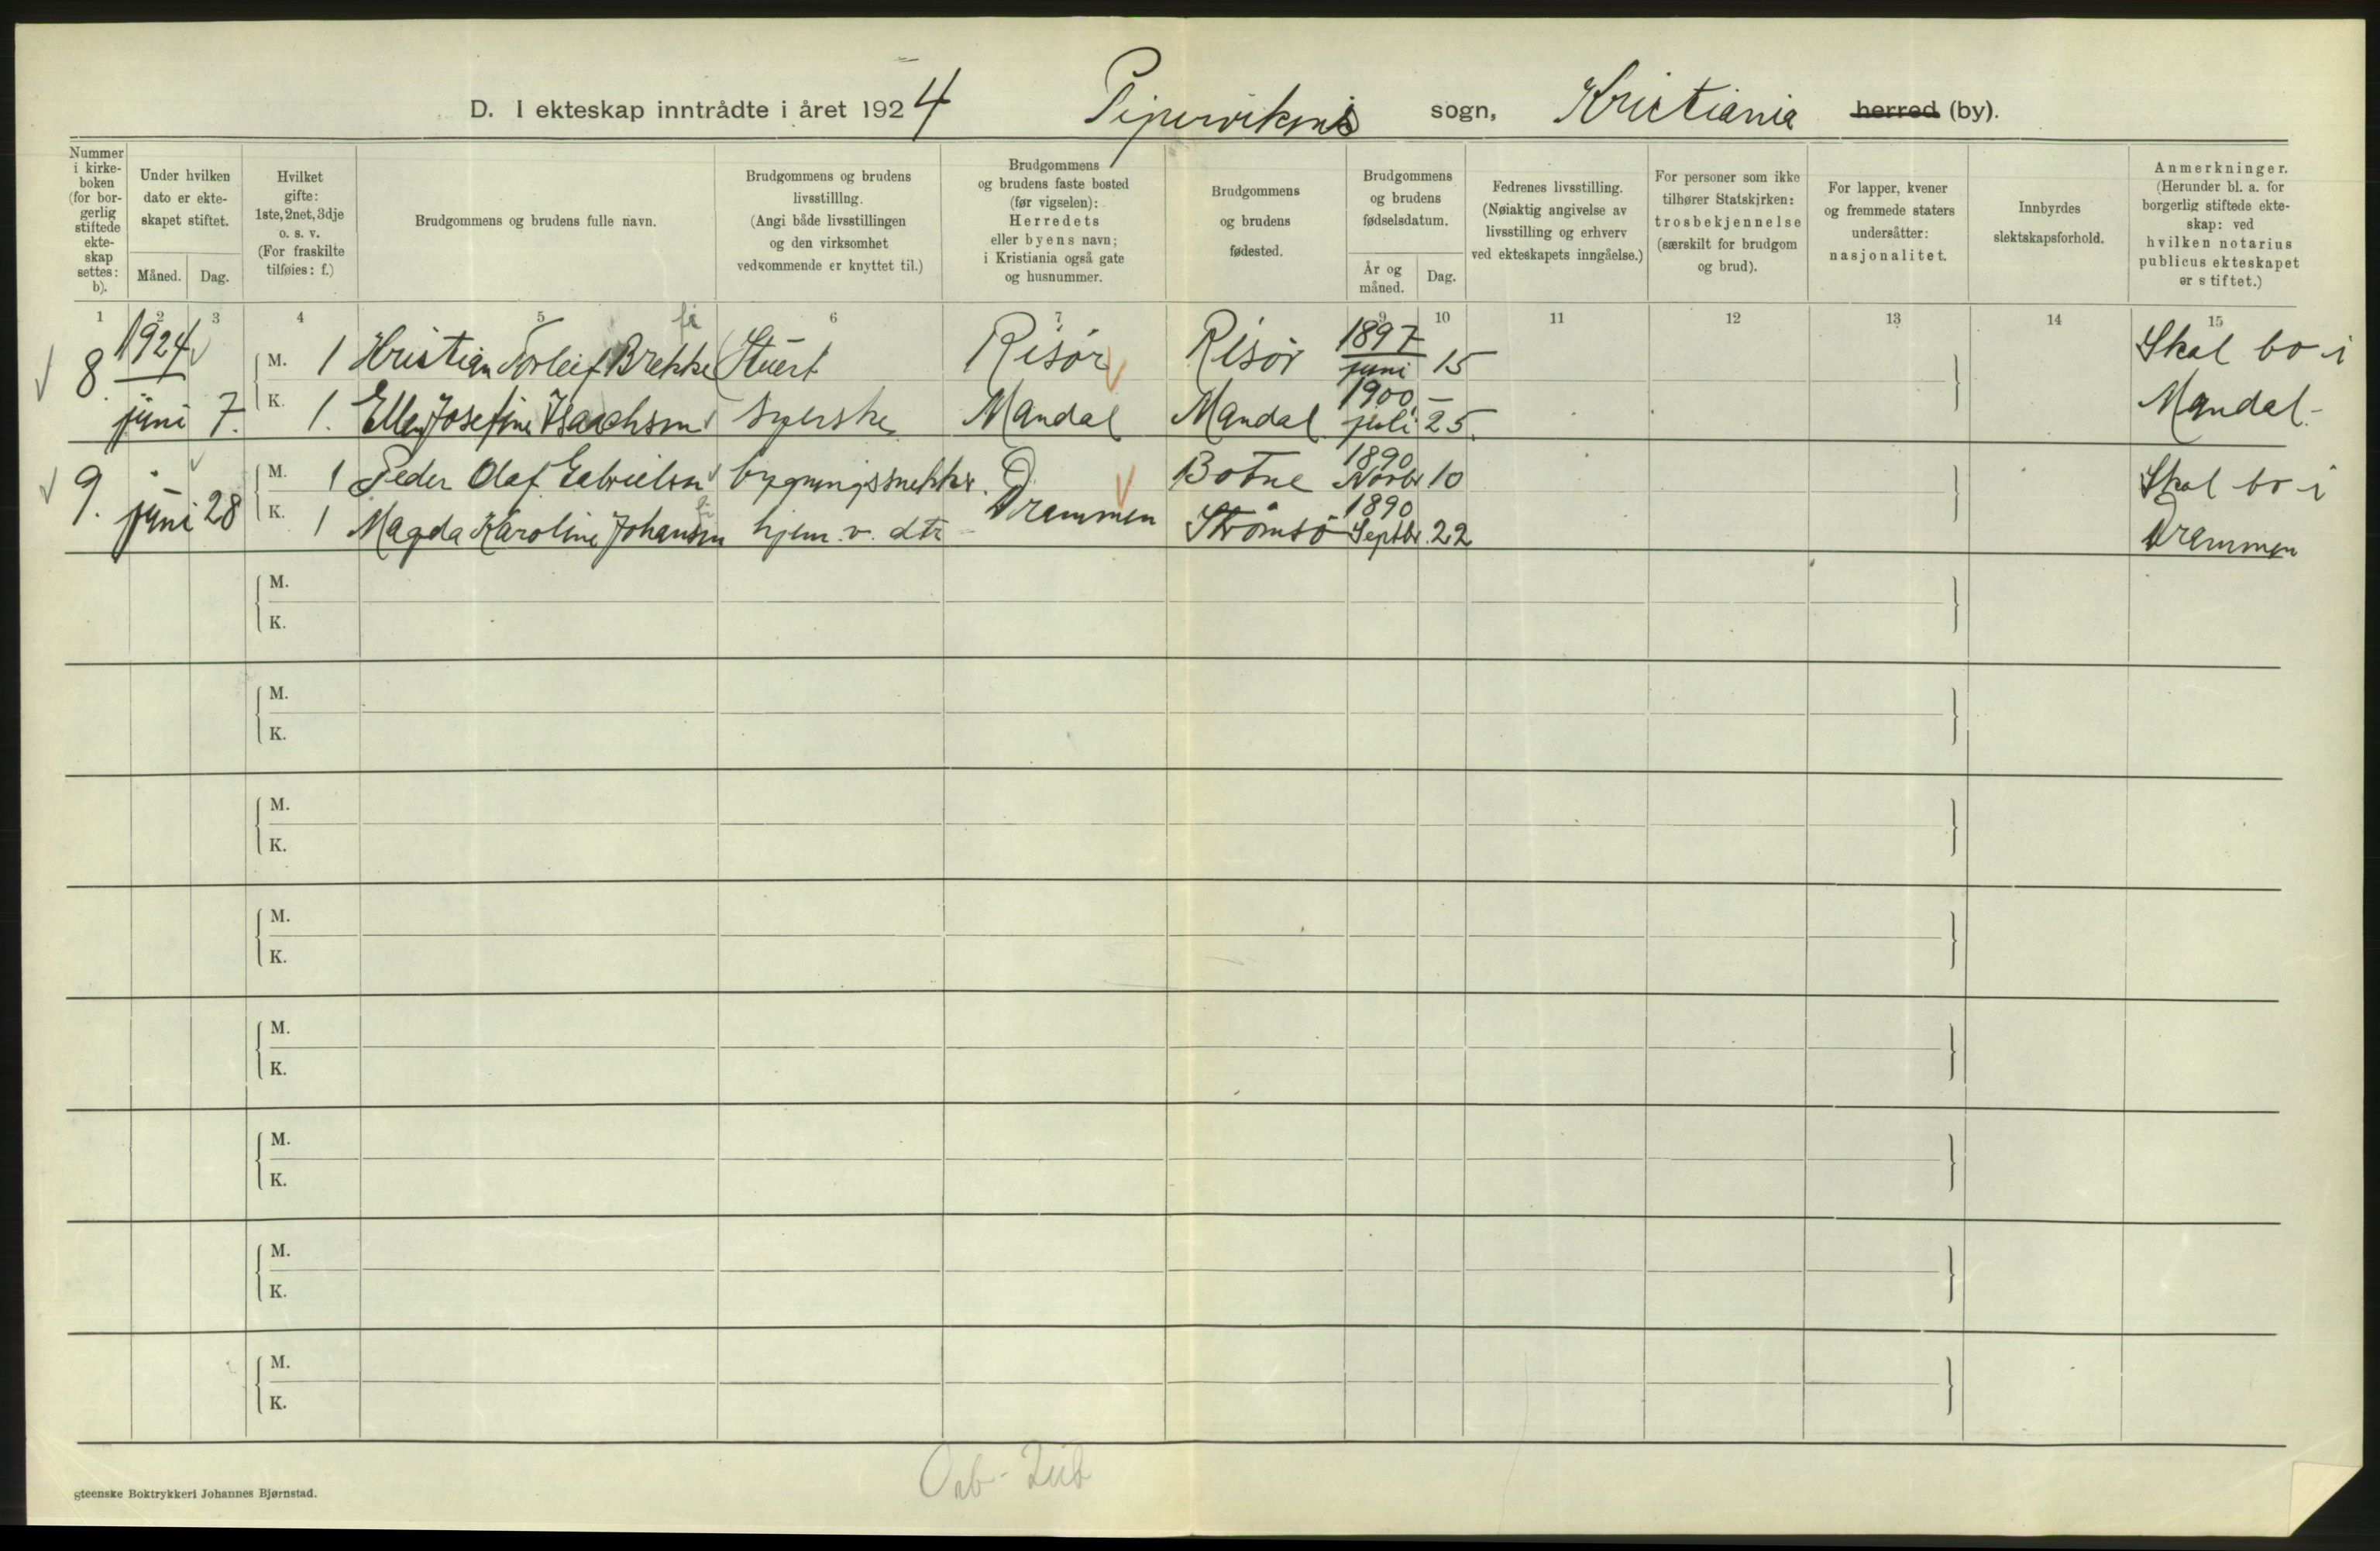 D. I ekteskap inntrådte i året 1924 Pipervikens sogn, Kristiania herred (by).
Nummer i kirkeboken (for borgerlig stiftede ekteskap settes: b).
Under hvilken dato er ekteskapet stiftet.
Måned. Dag.
Hvilket gifte: 1ste, 2net, 3dje o. s. v. (For fraskilte tilføies: f.)
Brudgommens og brudens fulle navn.
Brudgommens og brudens livsstilling. (Angi både livsstillingen og den virksomhet vedkommende er knyttet til.)
Brudgommens og brudens faste bosted (før vigselen): Herredets eller byens navn; i Kristiania også gate og husnummer.
Brudgommens og brudens fødested.
Brudgommens og brudens fødselsdatum.
År og måned. Dag.
Fedrenes livsstilling. (Nøiaktig angivelse av livsstilling og erhverv ved ekteskapets inngåelse.)
For personer som ikke tilhører Statskirken: trosbekjennelse (særskilt for brudgom og brud).
For lapper, kvener og fremmede staters undersåtter: nasjonalitet.
Innbyrdes slektskapsforhold.
Anmerkninger. (Herunder bl. a. for borgerlig stiftede ekteskap: ved hvilken notarius publicus ekteskapet er stiftet.)
1 2 3 4 5 6 7 8 9 10 11 12 13 14 15
8. 1924 M. 1 Kristian Torleif Brekke Stuert Risör Risör 1897 juni 15 Skal bo i
juni 7. K. 1. Ellen Josefine Isaachsen syerske Mandal Mandal 1900 juli 25. Mandal.
9. juni 28 M. 1 Peder Olaf Gabrielsen bygningssnekker. Drammen Botne 1890 Novbr 10 Skal bo i
K. 1 Magda Karoline Johansen hjem. v. dtr Strömsö 1890 Septbr. 22 Drammen
M.
K.
M.
K.
M.
K.
M.
K.
M.
K.
M.
K.
M.
K.
M.
K.
gteenske Boktrykkeri Johannes Bjørnstad.